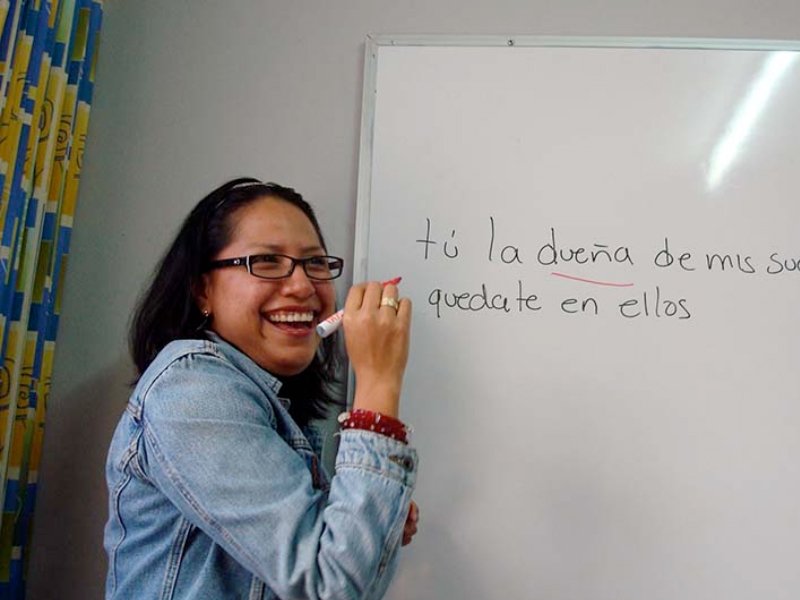 tú la dueña de mis
quedate en ellos